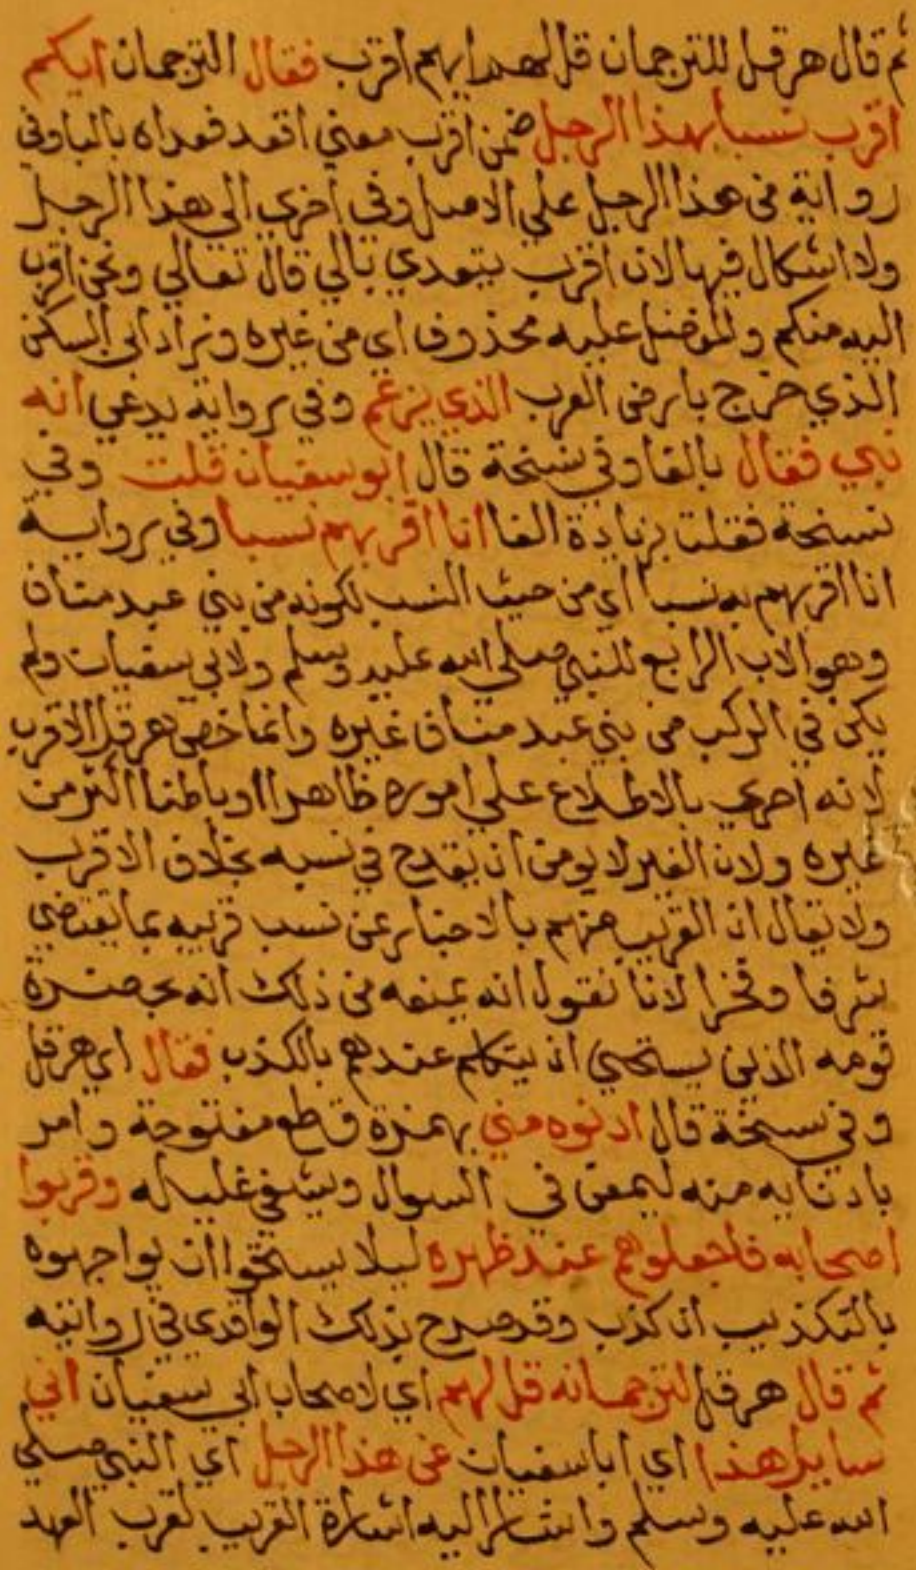 ثم قال هرقل للترجمان قل لهم ايهم اقرب فقال الترجمان ايكم
اقرب نسبا بهذا الرجل ضمن اقرب معني اقعد فعداه بالباوفي
رواية من هذا الرجل علي الاصل وفي اخري الي هذا الرجل
ولا اشكال فيها لان اقرب يتعدي بالي قال تعالي ونحن اقرب
اليه منكم والمفضل عليه محذوف اي من غيره وزاد ابن السكن
الذي خرج بارض العرب الذي يزعم وفي رواية يدعي انه
نبي فقال بالفا وفي نسخة قال ابو سفيان قلت وفي
نسخة فقلت بزيادة الفا انا اقربهم نسبا وفي رواية
انا اقربهم به نسبا اي من حيث النسب لكونه من بني عبد مناف
وهو الاب الرابع للنبي صلي الله عليه وسلم ولابي سفيان ولم
يكن في الركب من بني عبد مناف غيره وانما خص هرقل الاقرب
لانه احري بالاطلاع علي اموره ظاهرا او باطنا اكثر من
غيره ولان الغير لا يومن ان يقدح في نسبه بخلاف الاقرب
ولا يقال ان القريب متهم بالاخبار عن نسب قريبه بما يقتضي
شرفا وفخرا لانا نقول انه يمنعه من ذلك انه بحضرة
قومه الذين يستحيي ان يتكلم عندهم بالكذب فقال اي هرقل
وفي نسخة قال ادنوه مني بهمزة قطع مفتوحة وامر
بادنايه منه ليمعن في السوال ويشفي غليله وقربوا
اصحابه فاجعلوهم عند ظهره ليلا يستحيوا ان يواجهوه
بالتكذيب ان كذب وقد صرح بذلك الواقدي في روايته
ثم قال هرقل لترجمانه قل لهم اي لاصحاب ابي سفيان اني
سايل هذا اي ابا سفيان عن هذا الرجل اي النبي صلي
الله عليه وسلم واشار اليه اشارة القريب لقرب العهد